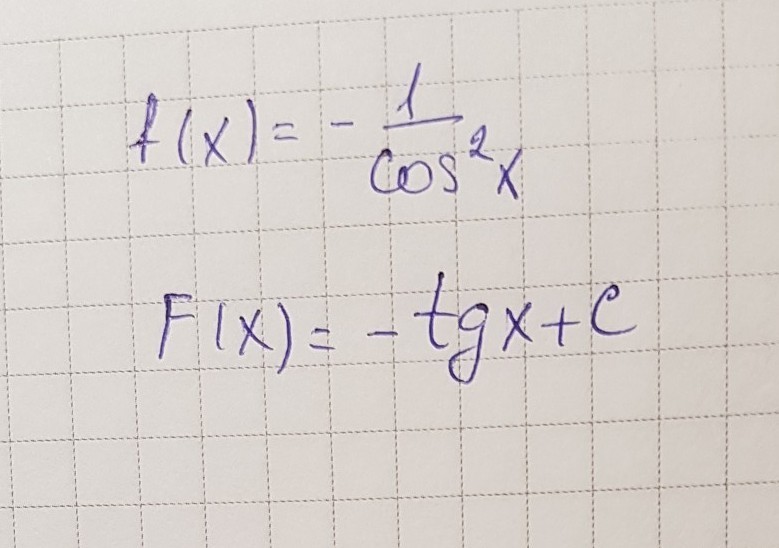 f(x) = - 1/cos²x
F(x) = -tgx+C